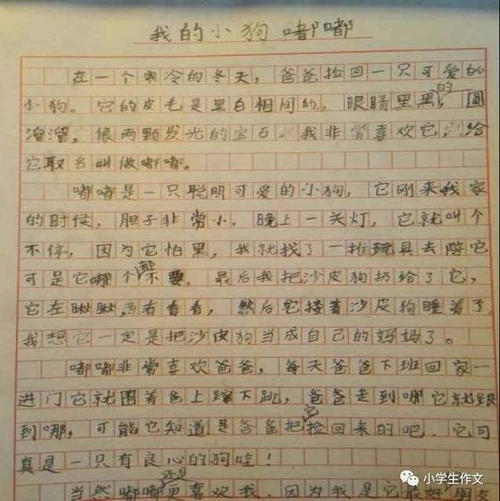 我的小狗嘟嘟
在一个寒冷的冬天，爸爸捡回一只可爱的
小狗。它的皮毛是黑白相间的。眼睛黑黑的，圆
溜溜，像两颗发光的宝石。我非常喜欢它，给
它取名叫做嘟嘟。
嘟嘟是一只聪明可爱的小狗，它刚来我家
的时候，胆子非常小。晚上一关灯，它就叫个
不停，因为它怕黑，我就找了一堆玩具去陪它
可是它哪个都不要，最后我把沙皮狗扔给了它，
它左瞅瞅，右看看，然后它搂着沙皮狗睡着了
我想它一定是把沙皮狗当成自己的妈妈了。
嘟嘟非常喜欢爸爸，每天爸爸下班回家一
进门它就围着爸上蹿下跳，爸爸走到哪它就跟
到哪，可能它知道是爸爸把它捡回来的吧，它可
真是一只有良心的狗哇！
当然嘟嘟还是更喜欢我，因为我是它最好
小学生作文